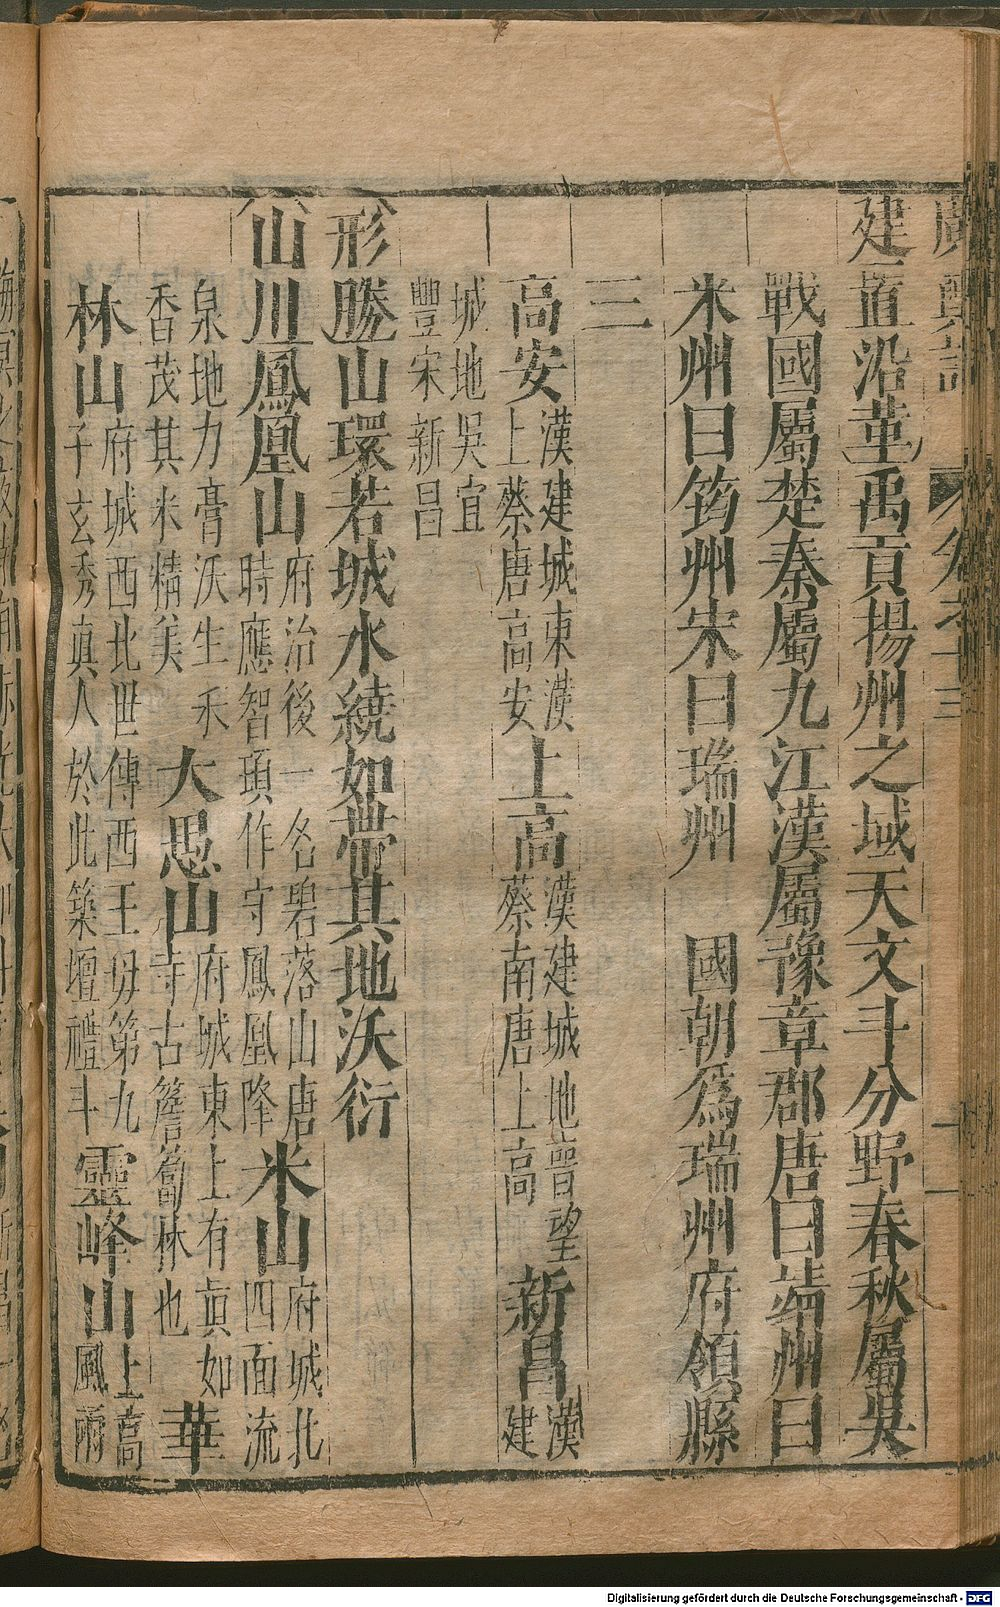 廣輿記 卷之十三
建置沿革禹貢揚州之域天文斗分野春秋屬吳
戰國屬楚秦屬九江漢屬豫章郡唐曰靖州曰
米州曰筠州宋曰瑞州 國朝爲瑞州府領縣
三
高安漢建城東漢上蔡唐高安上高漢建城地晉望蔡南唐上高新昌漢建
城地吳宜豐宋新昌
形勝山環若城水繞如帶其地沃衍
山川鳳凰山府治後一名碧落山唐時應智頊作守鳳凰降米山府城北四面流
泉地力膏沃生禾香茂其米精美大愚山府城東上有眞如寺古簷蔔林也華
林山府城西北世傳西王母第九子玄秀眞人於此築壇禮斗靈峰山上高風雨
Digitalisierung gefördert durch die Deutsche Forschungsgemeinschaft - DFG